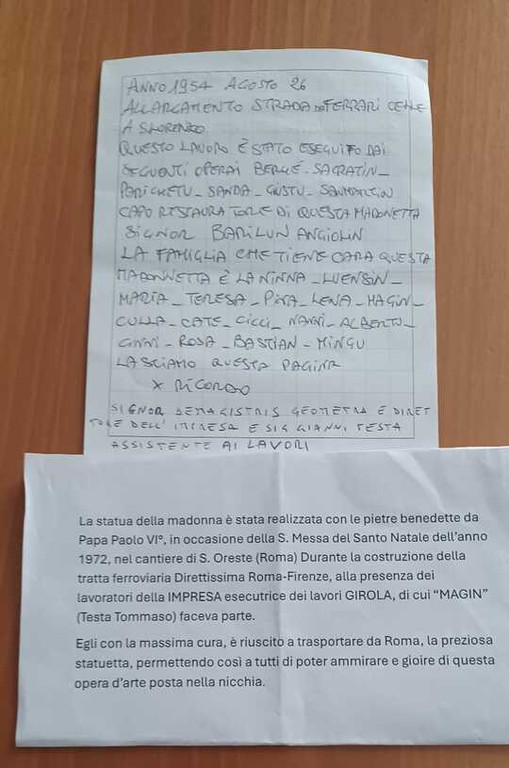 ANNO 1954 AGOSTO 26
ALLARGAMENTO STRADA DEFERRARI CELLE
A S LORENZO
QUESTO LAVORO È STATO ESEGUITO DAI
SEGUENTI OPERAI BERGÉ - SAGRATIN_
PARICHETU_ SANDA_ GUSTU_ SANMARTIN
CAPO RESTAURATORE DI QUESTA MADONETTA
SIGNOR BARILUN ANGIOLIN
LA FAMIGLIA CHE TIENE CARA QUESTA
MADONNETTA È LA NINNA_ LUENSIN_
MARIA_ TERESA_ PINA_ LENA_ MAGIN_
CULLA_ CATE_ CICCI_ NANNI_ ALBERTU_
GINNI_ ROSA_ BASTIAN_ MINGU
LASCIAMO QUESTA PAGINA
X RICORDO
SIGNOR DEMAGISTRIS GEOMETRA E DIRET
TORE DELL'IMPRESA E SIG GIANNI TESTA
ASSISTENTE AI LAVORI
La statua della madonna è stata realizzata con le pietre benedette da
Papa Paolo VI°, in occasione della S. Messa del Santo Natale dell'anno
1972, nel cantiere di S. Oreste (Roma) Durante la costruzione della
tratta ferroviaria Direttissima Roma-Firenze, alla presenza dei
lavoratori della IMPRESA esecutrice dei lavori GIROLA, di cui "MAGIN"
(Testa Tommaso) faceva parte.
Egli con la massima cura, è riuscito a trasportare da Roma, la preziosa
statuetta, permettendo così a tutti di poter ammirare e gioire di questa
opera d'arte posta nella nicchia.